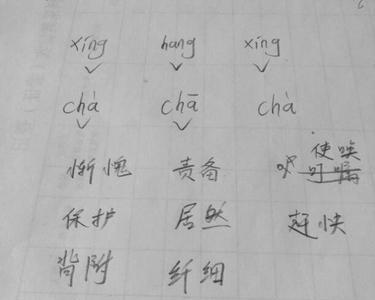 xíng hang xíng
chà chā chà
惭愧 责备 使唤
保护 居然 赶快
背附 纤细